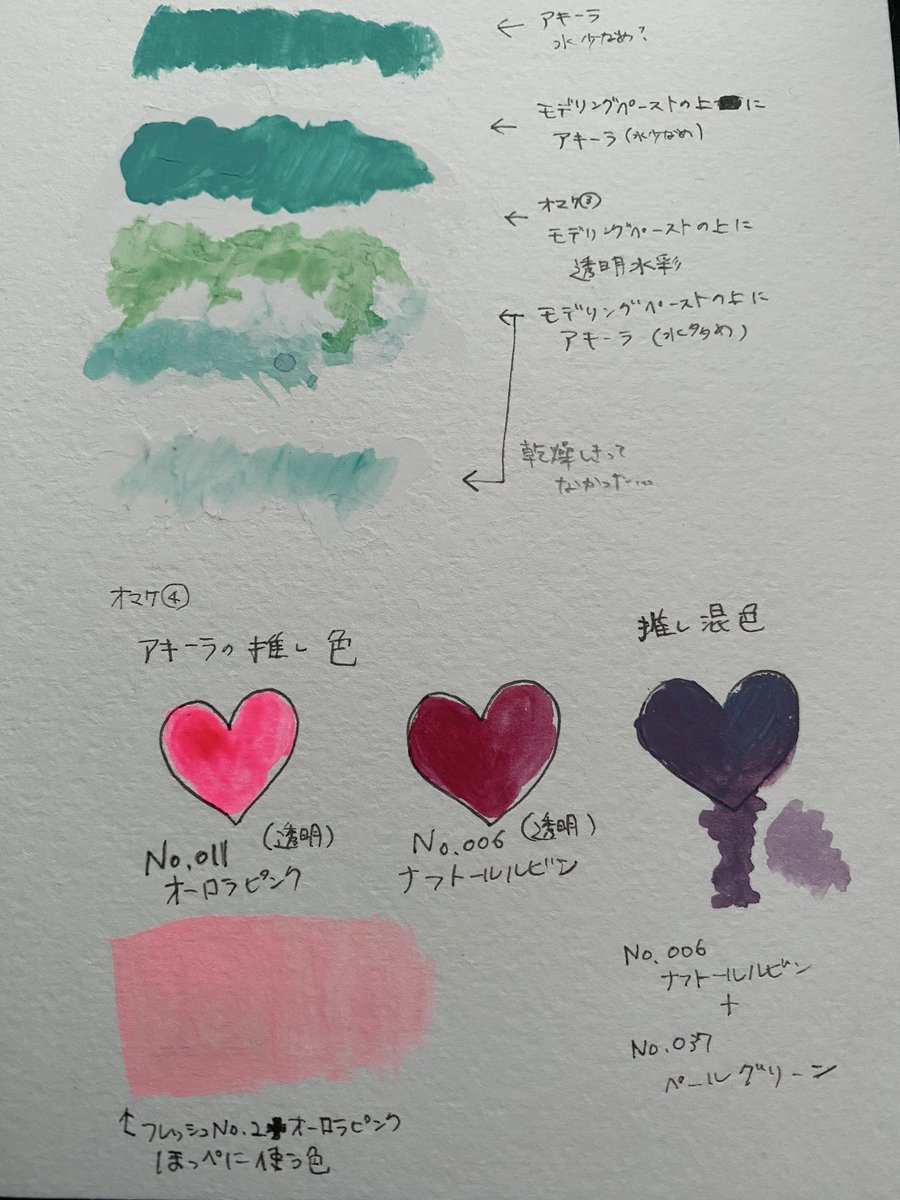 ← アキーラ
水少なめ?
← モデリングペーストの上に
アキーラ(水少なめ)
← オマケ③
モデリングペーストの上に
透明水彩
← モデリングペーストの上に
アキーラ (水多め)
← 乾燥しきって
なかった…
オマケ④
アキーラの推し色
推し混色
No.011 (透明)
オーロラピンク
No.006 (透明)
ナフトールルビン
No.006
ナフトールルビン
+
No.037
ペールグリーン
↑フレッシュNo.2+オーロラピンク
ほっぺに使う色